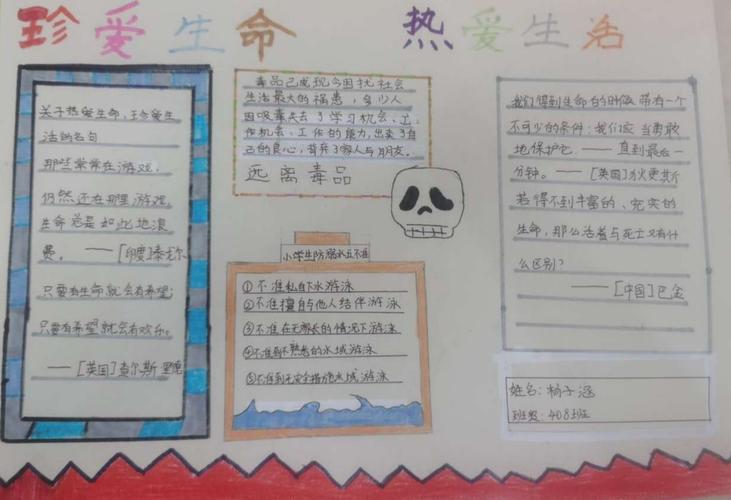 珍爱生命 热爱生活
关于热爱生命,珍爱生
活的名句
那些常常在游戏,
仍然还在那里游戏,
生命总是如此地浪
费。——[印度]泰戈尔
只要有生命就会有希望;
只要有希望就会有欢乐。
——[英国]查尔斯 里德
毒品已成现今困扰社会
生活最大的祸患,多少人
因吸毒失去了学习机会、工
作机会、工作的能力,出卖了自
己的良心,背弃了家人与朋友。
远离毒品
小学生防溺水五不准
①不准私自下水游泳
②不准擅自与他人结伴游泳
③不准在无家长的情况下游泳
④不准到不熟悉的水域游泳
⑤不准到无安全措施水域游泳
我们得到生命的时候带有一个
不可少的条件:我们应当勇敢
地保护它——直到最后一
分钟。——[英国]狄更斯
若得不到丰富的、充实的
生命,那么活着与死亡又有什
么区别?
——[中国]巴金
姓名:杨子涵
班级:408班